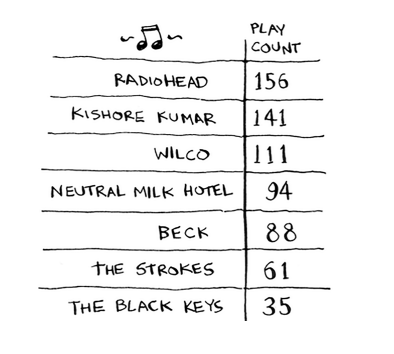 PLAY
COUNT
RADIOHEAD 156
KISHORE KUMAR 141
WILCO 111
NEUTRAL MILK HOTEL 94
BECK 88
THE STROKES 61
THE BLACK KEYS 35